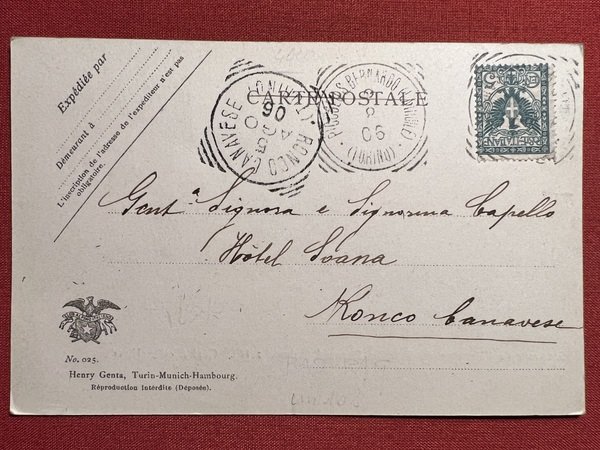 Expédiée par
Demeurant à
L'inscription de l'adresse de l'expéditeur n'est pas
obligatoire.
CARTE POSTALE
RONCO CANAVESE (TORINO)
06
BERNARDO
8
06
(TORINO)
Gent.ª Signora e Signorina Capello
Hôtel Soana
Ronco Canavese
No. 025.
Henry Genta, Turin-Munich-Hambourg.
Réproduction Intérdite (Déposée).